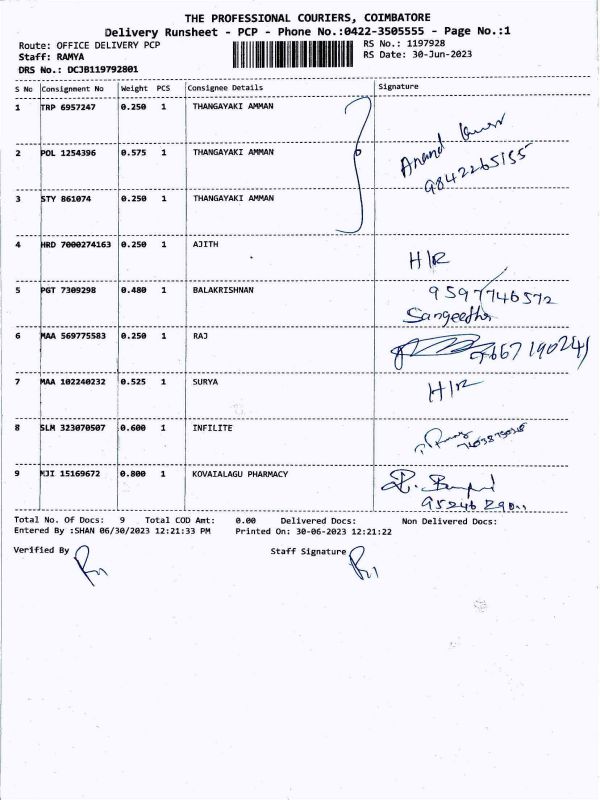 THE PROFESSIONAL COURIERS, COIMBATORE
Delivery Runsheet - PCP - Phone No.:0422-3505555 - Page No.:1
Route: OFFICE DELIVERY PCP RS No.: 1197928
Staff: RAMYA RS Date: 30-Jun-2023
DRS No.: DCJB119792801
S No Consignment No Weight PCS Consignee Details Signature
1 TRP 6957247 0.250 1 THANGAYAKI AMMAN
Anand
2 POL 1254396 0.575 1 THANGAYAKI AMMAN
9842265155
3 STY 861074 0.250 1 THANGAYAKI AMMAN
4 HRD 7000274163 0.250 1 AJITH
H/R
5 PGT 7309298 0.480 1 BALAKRISHNAN 9597746572
Sangeetha
6 MAA 569775583 0.250 1 RAJ
7 MAA 102240232 0.525 1 SURYA H/R
8 SLM 323070507 0.600 1 INFILITE
9 MJI 15169672 0.800 1 KOVAIALAGU PHARMACY
Total No. Of Docs: 9 Total COD Amt: 0.00 Delivered Docs: Non Delivered Docs:
Entered By :SHAN 06/30/2023 12:21:33 PM Printed On: 30-06-2023 12:21:22
Verified By Staff Signature